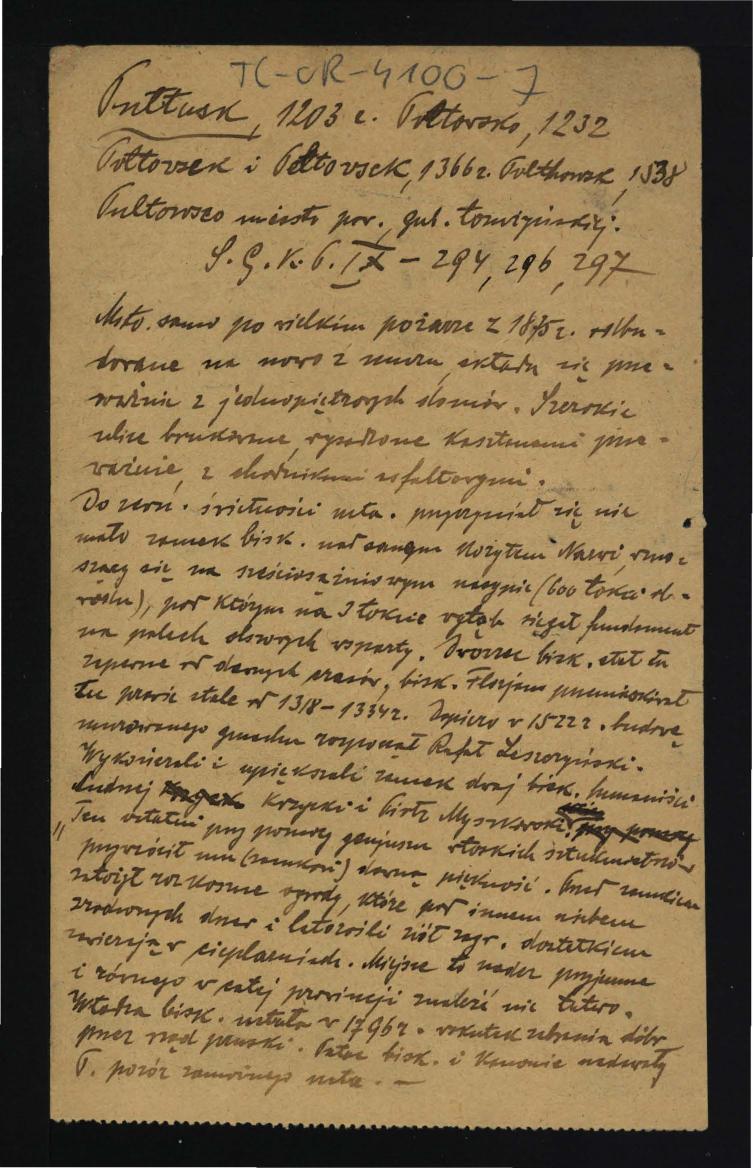 TC-OR-4100-7
Pułtusk, 1203 r. Połtowsko, 1232
Połtovsek i Pełtovsek, 1366 r. Polthowsk, 1538
Pultowsco miasto pow., gub. łomżyńskiej.
S. G. K. P. IX – 294, 296, 297
Msto. samo po wielkim pożarze z 1875 r. odbu-
dowane na nowo z muru, składa się prze-
ważnie z jednopiętrowych domów. Szerokie
ulice brukowane, wysadzone kasztanami prze-
ważnie, z chodnikami asfaltowymi.
Do zewn. świetności msta. przyczyniał się nie
mało zamek bisk. nad samym korytem Narwi, wzno-
szący się na sześciosążniowym nasypie (600 łokci ob-
wodu), pod którym na 3 łokcie w głąb sięgał fundament
na palach olszowych wsparty. Dworzec bisk. stał tu
zapewne od dawnych czasów, bisk. Florjan przemieszkiwał
tu prawie stale od 1318–1334 r. Dopiero w 1522 r. budowę
murowanego gmachu rozpoczął Rafał Leszczyński.
Wykończali i upiększali zamek dwaj bisk. humaniści
Andrzej Krzycki i Piotr Myszkowski.
"Ten ostatni przy pomocy genjuszu włoskich sztukmistrzów
przywrócił mu (zamkowi) dawną piękność. Przed zamkiem
założył rozkoszne ogrody, które pod innem niebem
zrodzonych drzew i latorośli ziół zagr. dostatkiem
zwierzęja w cieplarniach. Miejsce to nader przyjemne
i równego w całej prowincji znaleźć nie łatwo.
Władza bisk. ustała w 1796 r. wskutek zabrania dóbr
przez rząd pruski. Pałac bisk. i kanonie nadawały
P. pozór zamożnego msta. —